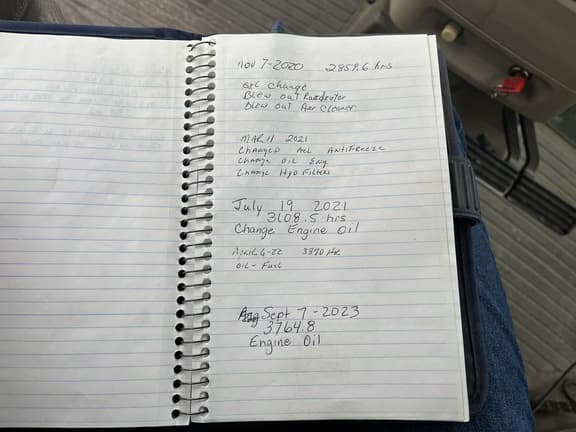 Nov 7-2020 2859.6 hrs
Oil Change
Blew out Raidrator
Blew out Aer Cleaner
MAR 11 2021
Changed All AntiFreeze
Change Oil Eng
Change Hyd Filters
July 19 2021
3108.5 hrs
Change Engine Oil
April 6-22 3390 Hr
Oil - Fuel
Sept 7-2023
3764.8
Engine Oil